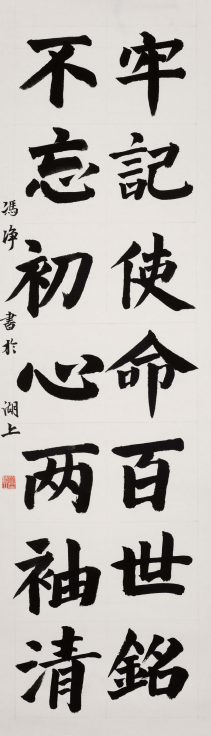 牢記使命百世銘
不忘初心两袖清
馮净書於湖上